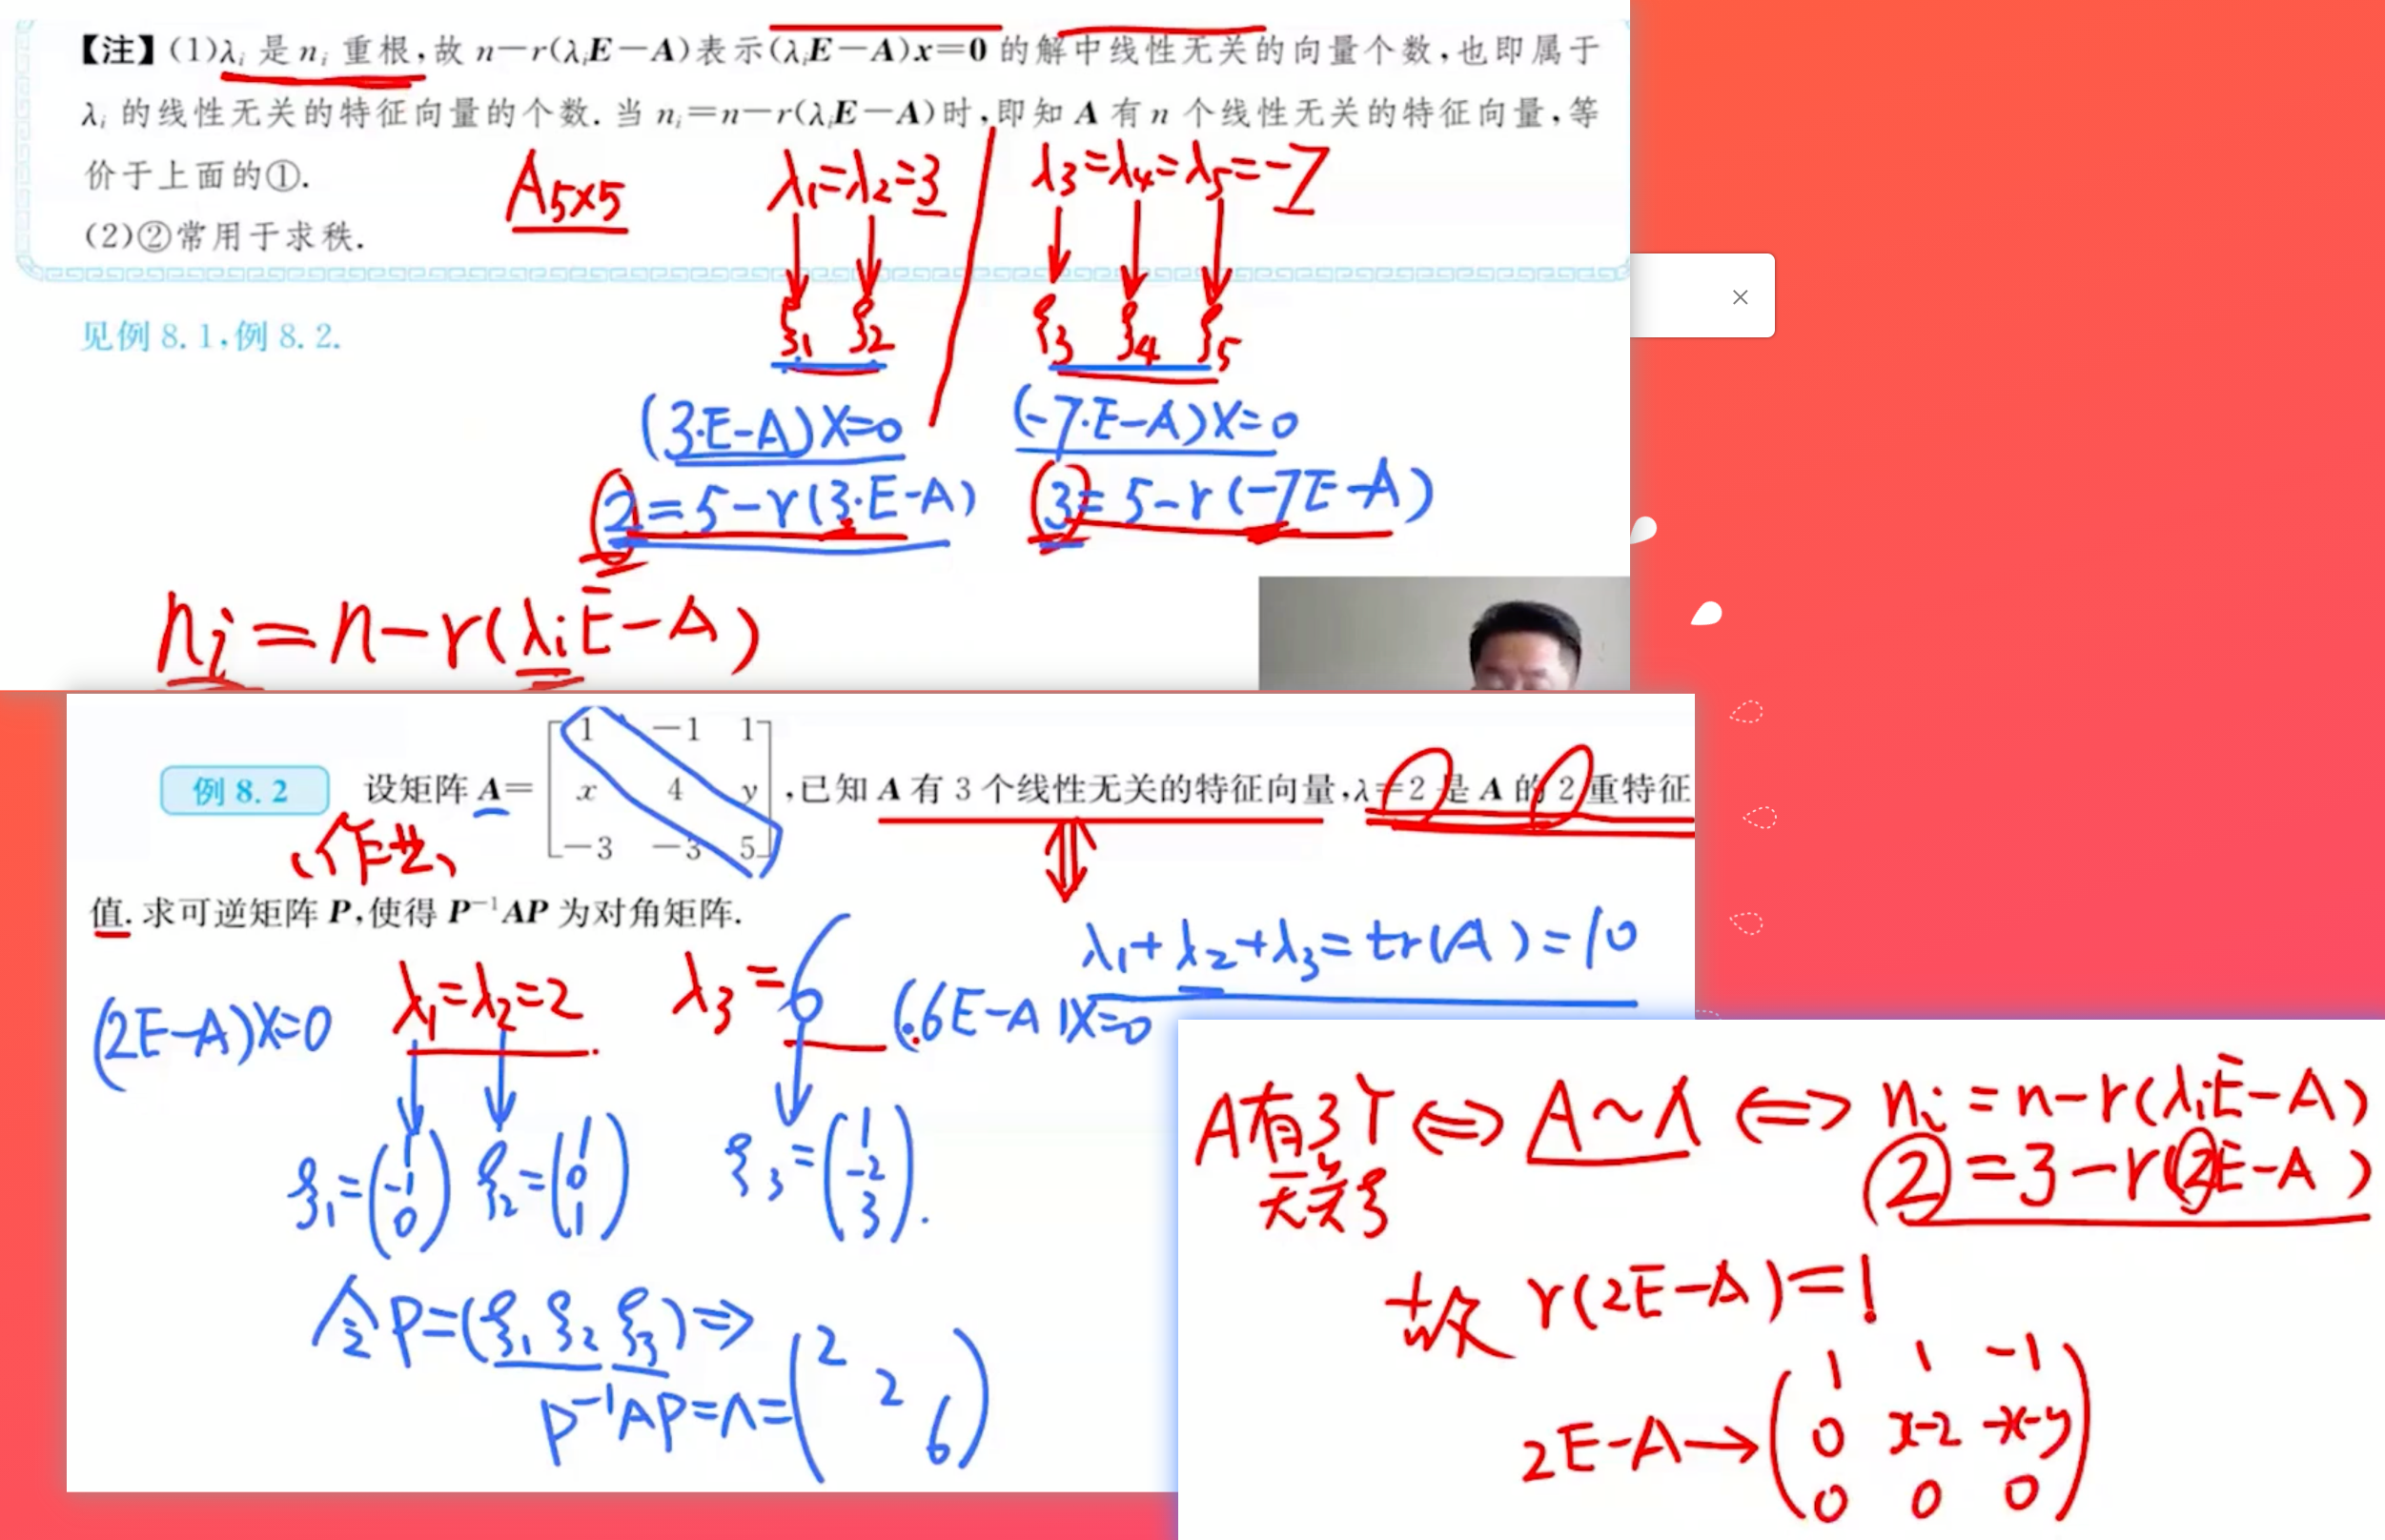 【注】(1)λᵢ 是 nᵢ 重根,故 n−r(λᵢE−A)表示(λᵢE−A)x=0 的解中线性无关的向量个数,也即属于
λᵢ 的线性无关的特征向量的个数.当 nᵢ=n−r(λᵢE−A)时,即知 A 有 n 个线性无关的特征向量,等
价于上面的①.
(2)②常用于求秩.
A5×5
λ₁=λ₂=3
λ₃=λ₄=λ₅=−7
ξ₁ ξ₂
ξ₃ ξ₄ ξ₅
见例 8.1,例 8.2.
(3·E−A)X=0
(−7·E−A)X=0
2=5−r(3·E−A)
3=5−r(−7E−A)
nᵢ=n−r(λᵢE−A)
例 8.2 设矩阵 A=[1 −1 1
x 4 y
−3 −3 5],已知 A 有 3 个线性无关的特征向量,λ=2 是 A 的 2 重特征
(作业)
值.求可逆矩阵 P,使得 P⁻¹AP 为对角矩阵.
λ₁+λ₂+λ₃=tr(A)=10
(2E−A)X=0
λ₁=λ₂=2
λ₃=6
(6E−A)X=0
ξ₁=(1 −1 0) ξ₂=(1 0 1) ξ₃=(1 −2 3).
令P=(ξ₁ ξ₂ ξ₃)⇒
P⁻¹AP=Λ=(2 2 6)
A有3个⇔A~Λ⇔nᵢ=n−r(λᵢE−A)
无关ξ
2=3−r(2E−A)
故 r(2E−A)=1
2E−A→(1 1 −1
0 x−2 −x−y
0 0 0)